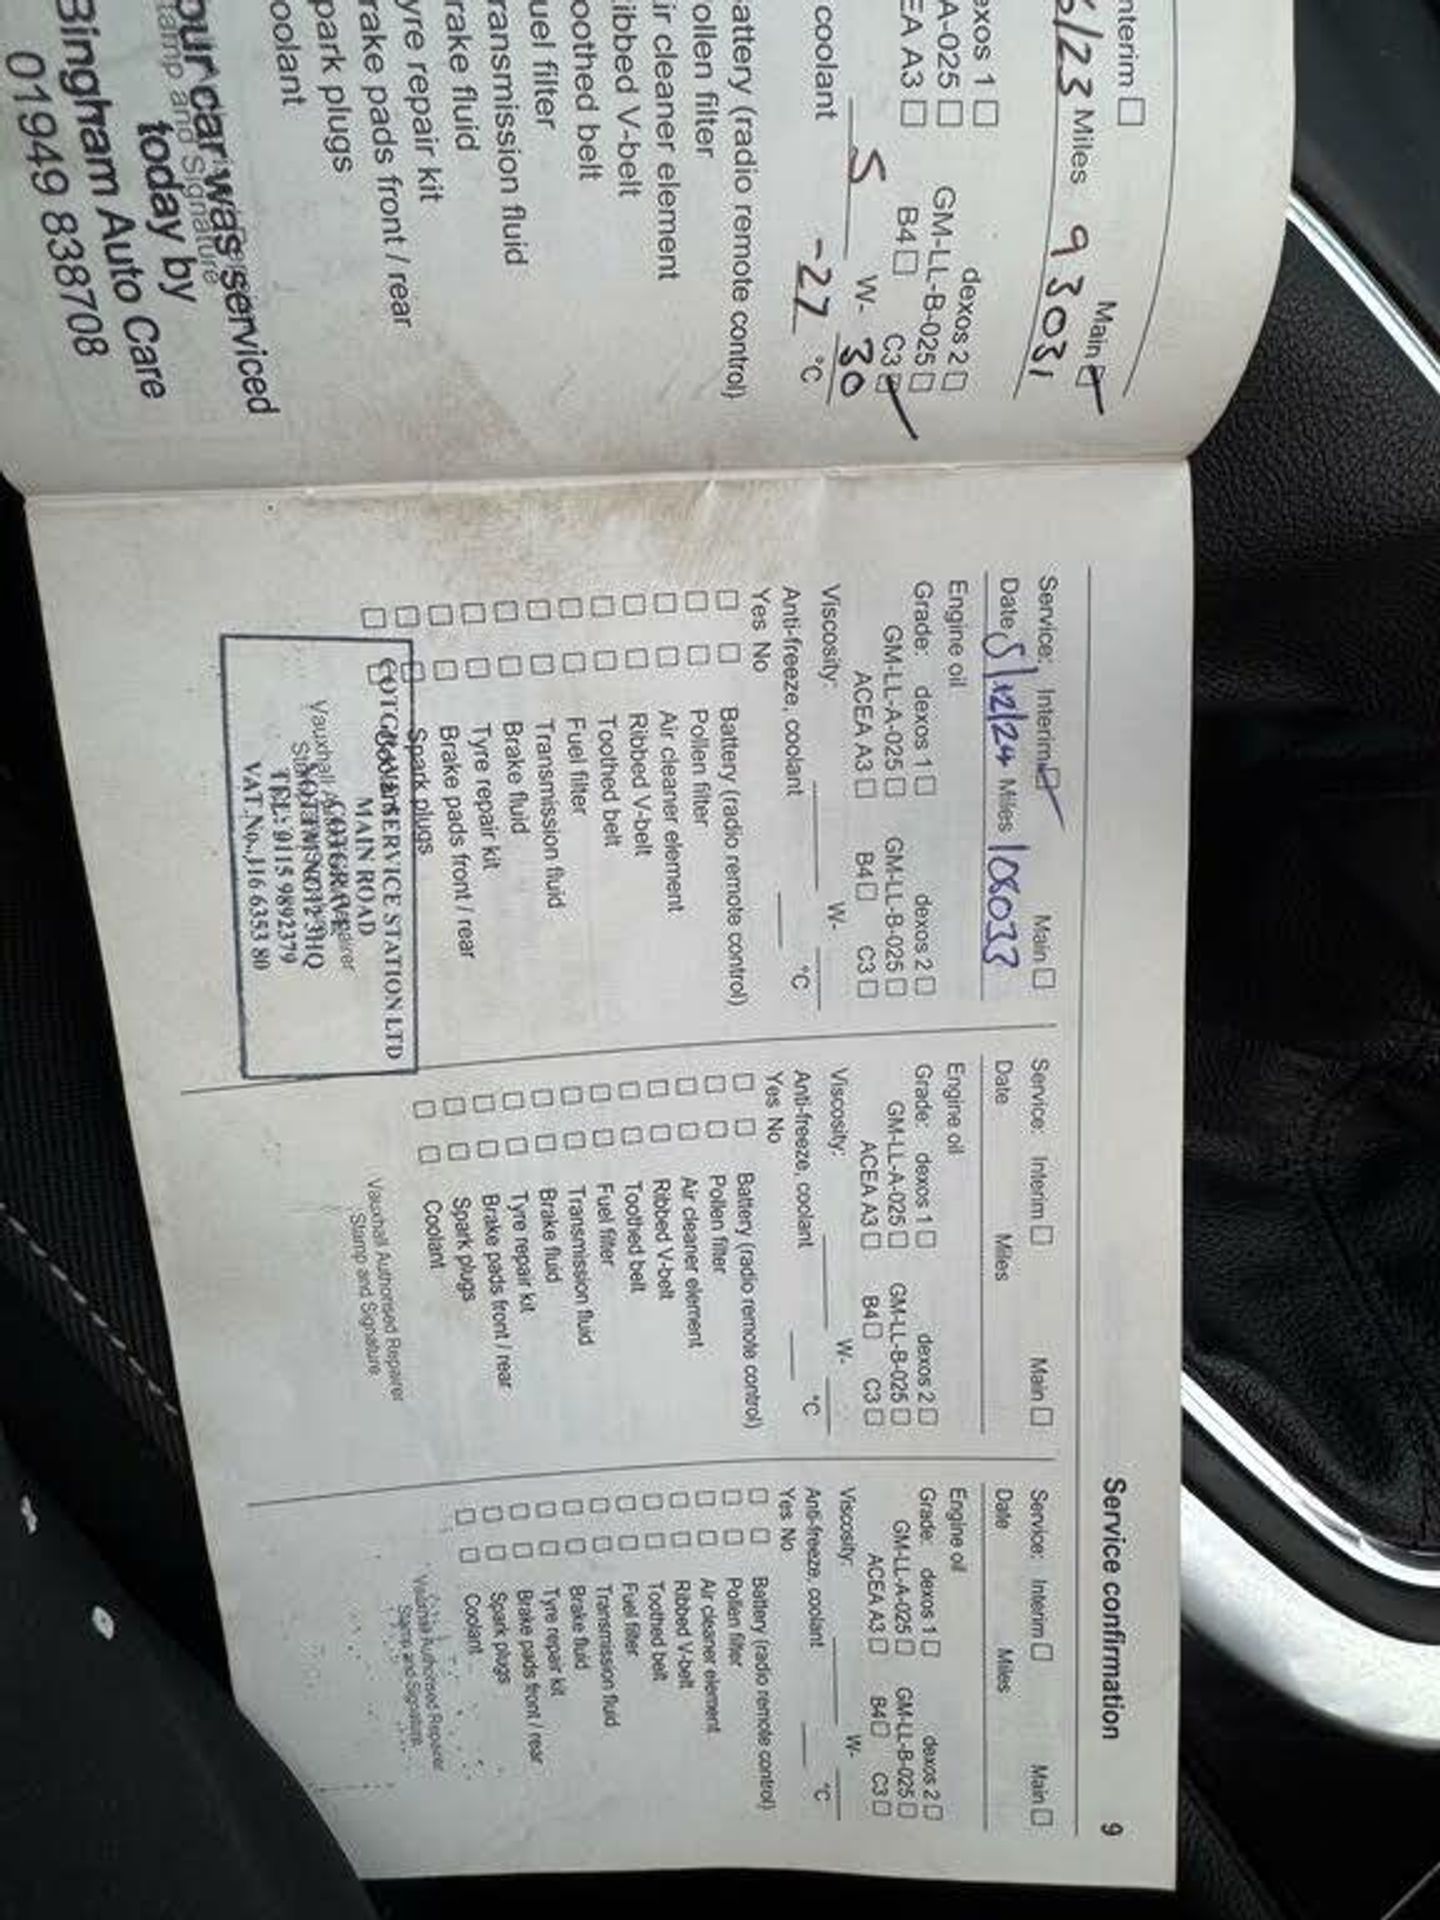 nterim ☐ Main ☑
6/23 Miles 93031
exos 1 ☐ dexos 2 ☐
A-025 ☐ GM-LL-B-025 ☐
EA A3 ☐ B4 ☐ C3 ☑
5 W- 30
coolant -27 °C
attery (radio remote control)
ollen filter
ir cleaner element
ibbed V-belt
oothed belt
uel filter
ransmission fluid
rake fluid
yre repair kit
rake pads front / rear
park plugs
oolant
our car was serviced
tamp and Signature
today by
Bingham Auto Care
01949 838708
Service confirmation 9
Service: Interim ☑ Main ☐
Date 5/12/24 Miles 106033
Engine oil
Grade: dexos 1 ☐ dexos 2 ☐
GM-LL-A-025 ☐ GM-LL-B-025 ☐
ACEA A3 ☐ B4 ☐ C3 ☐
Viscosity: W-
Anti-freeze, coolant °C
Yes No
☐ ☐ Battery (radio remote control)
☐ ☐ Pollen filter
☐ ☐ Air cleaner element
☐ ☐ Ribbed V-belt
☐ ☐ Toothed belt
☐ ☐ Fuel filter
☐ ☐ Transmission fluid
☐ ☐ Brake fluid
☐ ☐ Tyre repair kit
☐ ☐ Brake pads front / rear
☐ ☐ Spark plugs
☐ ☐ Coolant
COTGRAVE SERVICE STATION LTD
MAIN ROAD
COTGRAVE
NOTTM NG12 3HQ
TEL: 0115 9892379
VAT.No.,116 6353 80
Service: Interim ☐ Main ☐
Date Miles
Engine oil
Grade: dexos 1 ☐ dexos 2 ☐
GM-LL-A-025 ☐ GM-LL-B-025 ☐
ACEA A3 ☐ B4 ☐ C3 ☐
Viscosity: W-
Anti-freeze, coolant °C
Yes No
☐ ☐ Battery (radio remote control)
☐ ☐ Pollen filter
☐ ☐ Air cleaner element
☐ ☐ Ribbed V-belt
☐ ☐ Toothed belt
☐ ☐ Fuel filter
☐ ☐ Transmission fluid
☐ ☐ Brake fluid
☐ ☐ Tyre repair kit
☐ ☐ Brake pads front / rear
☐ ☐ Spark plugs
☐ ☐ Coolant
Vauxhall Authorised Repairer
Stamp and Signature
Service: Interim ☐ Main ☐
Date Miles
Engine oil
Grade: dexos 1 ☐ dexos 2 ☐
GM-LL-A-025 ☐ GM-LL-B-025 ☐
ACEA A3 ☐ B4 ☐ C3 ☐
Viscosity: W-
Anti-freeze, coolant °C
Yes No
☐ ☐ Battery (radio remote control)
☐ ☐ Pollen filter
☐ ☐ Air cleaner element
☐ ☐ Ribbed V-belt
☐ ☐ Toothed belt
☐ ☐ Fuel filter
☐ ☐ Transmission fluid
☐ ☐ Brake fluid
☐ ☐ Tyre repair kit
☐ ☐ Brake pads front / rear
☐ ☐ Spark plugs
☐ ☐ Coolant
Vauxhall Authorised Repairer
Stamp and Signature